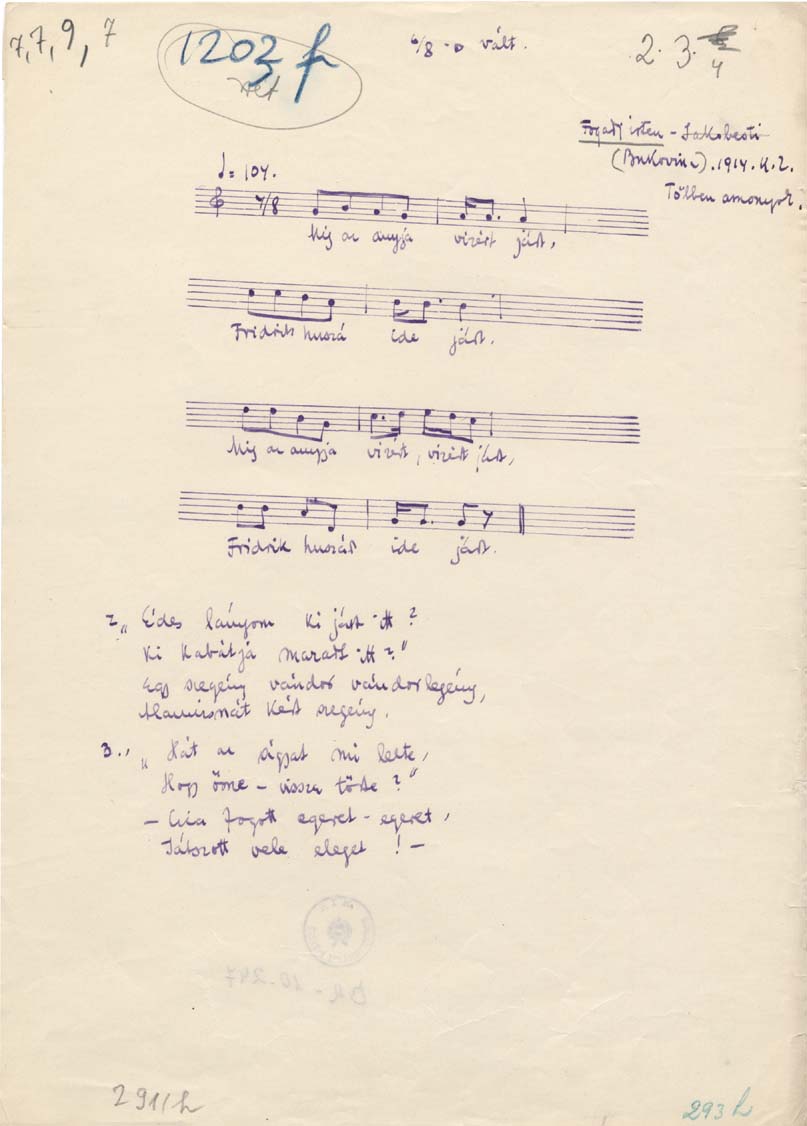 7, 7, 9, 7
1203 f
6/8 -o vált.
2. 3. 4
Fogadj isten - Jakobesti
(Bukovina). 1914. K. Z.
Többen asszonyok.
♩= 104.
7/8
Mig az anyja vizért járt,
Fridrik huszá ide járt.
Mig az anyja vizért, vizért járt,
Fridrik huszár ide járt.
2. „Édes lányom ki járt itt?
Ki kabátja maradt itt?"
Egy szegény vándor vándorlegény,
Alamizsnát kért szegény.
3. „Hát az ágyat mi lelte,
Hogy össze - vissza törte?"
- Cica fogott egeret - egeret,
Játszott vele eleget! -
291/h
293 h